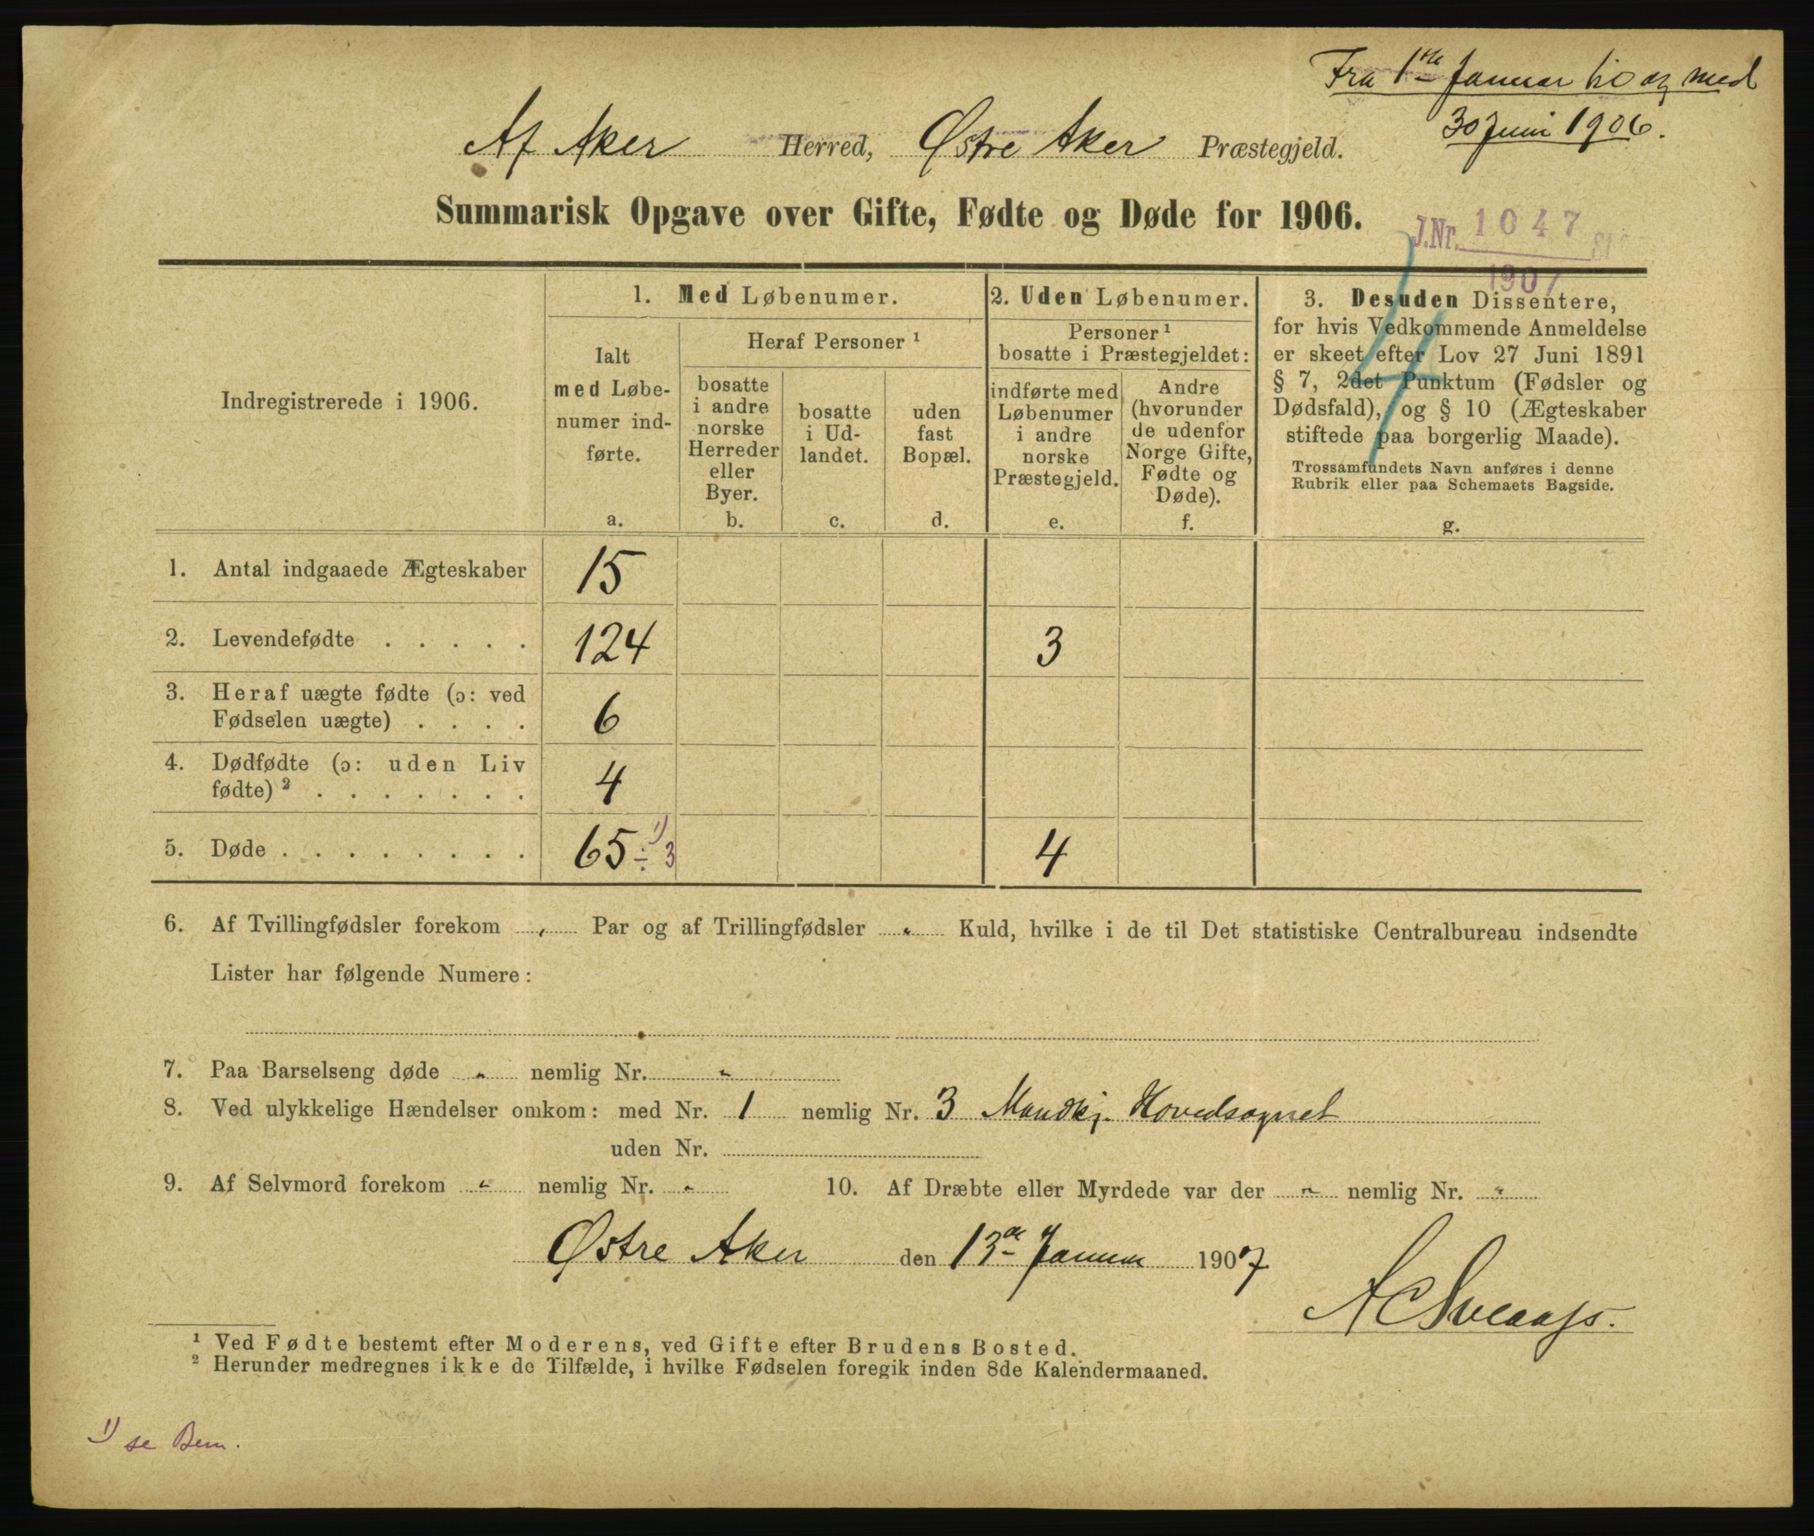 Fra 1ste Januar til og med
30 Juni 1906.
Af Aker Herred, Østre Aker Præstegjeld.
Summarisk Opgave over Gifte, Fødte og Døde for 1906.
J.Nr. 1047
1907
4
Indregistrerede i 1906.
1. Med Løbenumer.
Ialt
med Løbe-
numer ind-
førte.
a.
Heraf Personer ¹
bosatte
i andre
norske
Herreder
eller
Byer.
b.
bosatte
i Ud-
landet.
c.
uden
fast
Bopæl.
d.
2. Uden Løbenumer.
Personer ¹
bosatte i Præstegjeldet:
indførte med
Løbenumer
i andre
norske
Præstegjeld.
e.
Andre
(hvorunder
de udenfor
Norge Gifte,
Fødte og
Døde).
f.
3. Desuden Dissentere,
for hvis Vedkommende Anmeldelse
er skeet efter Lov 27 Juni 1891
§ 7, 2det Punktum (Fødsler og
Dødsfald), og § 10 (Ægteskaber
stiftede paa borgerlig Maade).
Trossamfundets Navn anføres i denne
Rubrik eller paa Schemaets Bagside.
g.
1. Antal indgaaede Ægteskaber 15
2. Levendefødte . . . . . 124 3
3. Heraf uægte fødte (ɔ: ved
Fødselen uægte) . . . . 6
4. Dødfødte (ɔ: uden Liv
fødte) ² . . . . . . . 4
5. Døde . . . . . . . . 65 ÷ 3 ¹) 4
6. Af Tvillingfødsler forekom " Par og af Trillingfødsler " Kuld, hvilke i de til Det statistiske Centralbureau indsendte
Lister har følgende Numere:
7. Paa Barselseng døde " nemlig Nr. "
8. Ved ulykkelige Hændelser omkom: med Nr. 1 nemlig Nr. 3 Mandkj. Hovedsognet
uden Nr.
9. Af Selvmord forekom " nemlig Nr. " 10. Af Dræbte eller Myrdede var der " nemlig Nr. "
Østre Aker den 13de Januar 1907
¹ Ved Fødte bestemt efter Moderens, ved Gifte efter Brudens Bosted.
² Herunder medregnes ikke de Tilfælde, i hvilke Fødselen foregik inden 8de Kalendermaaned.
¹) se Bem.